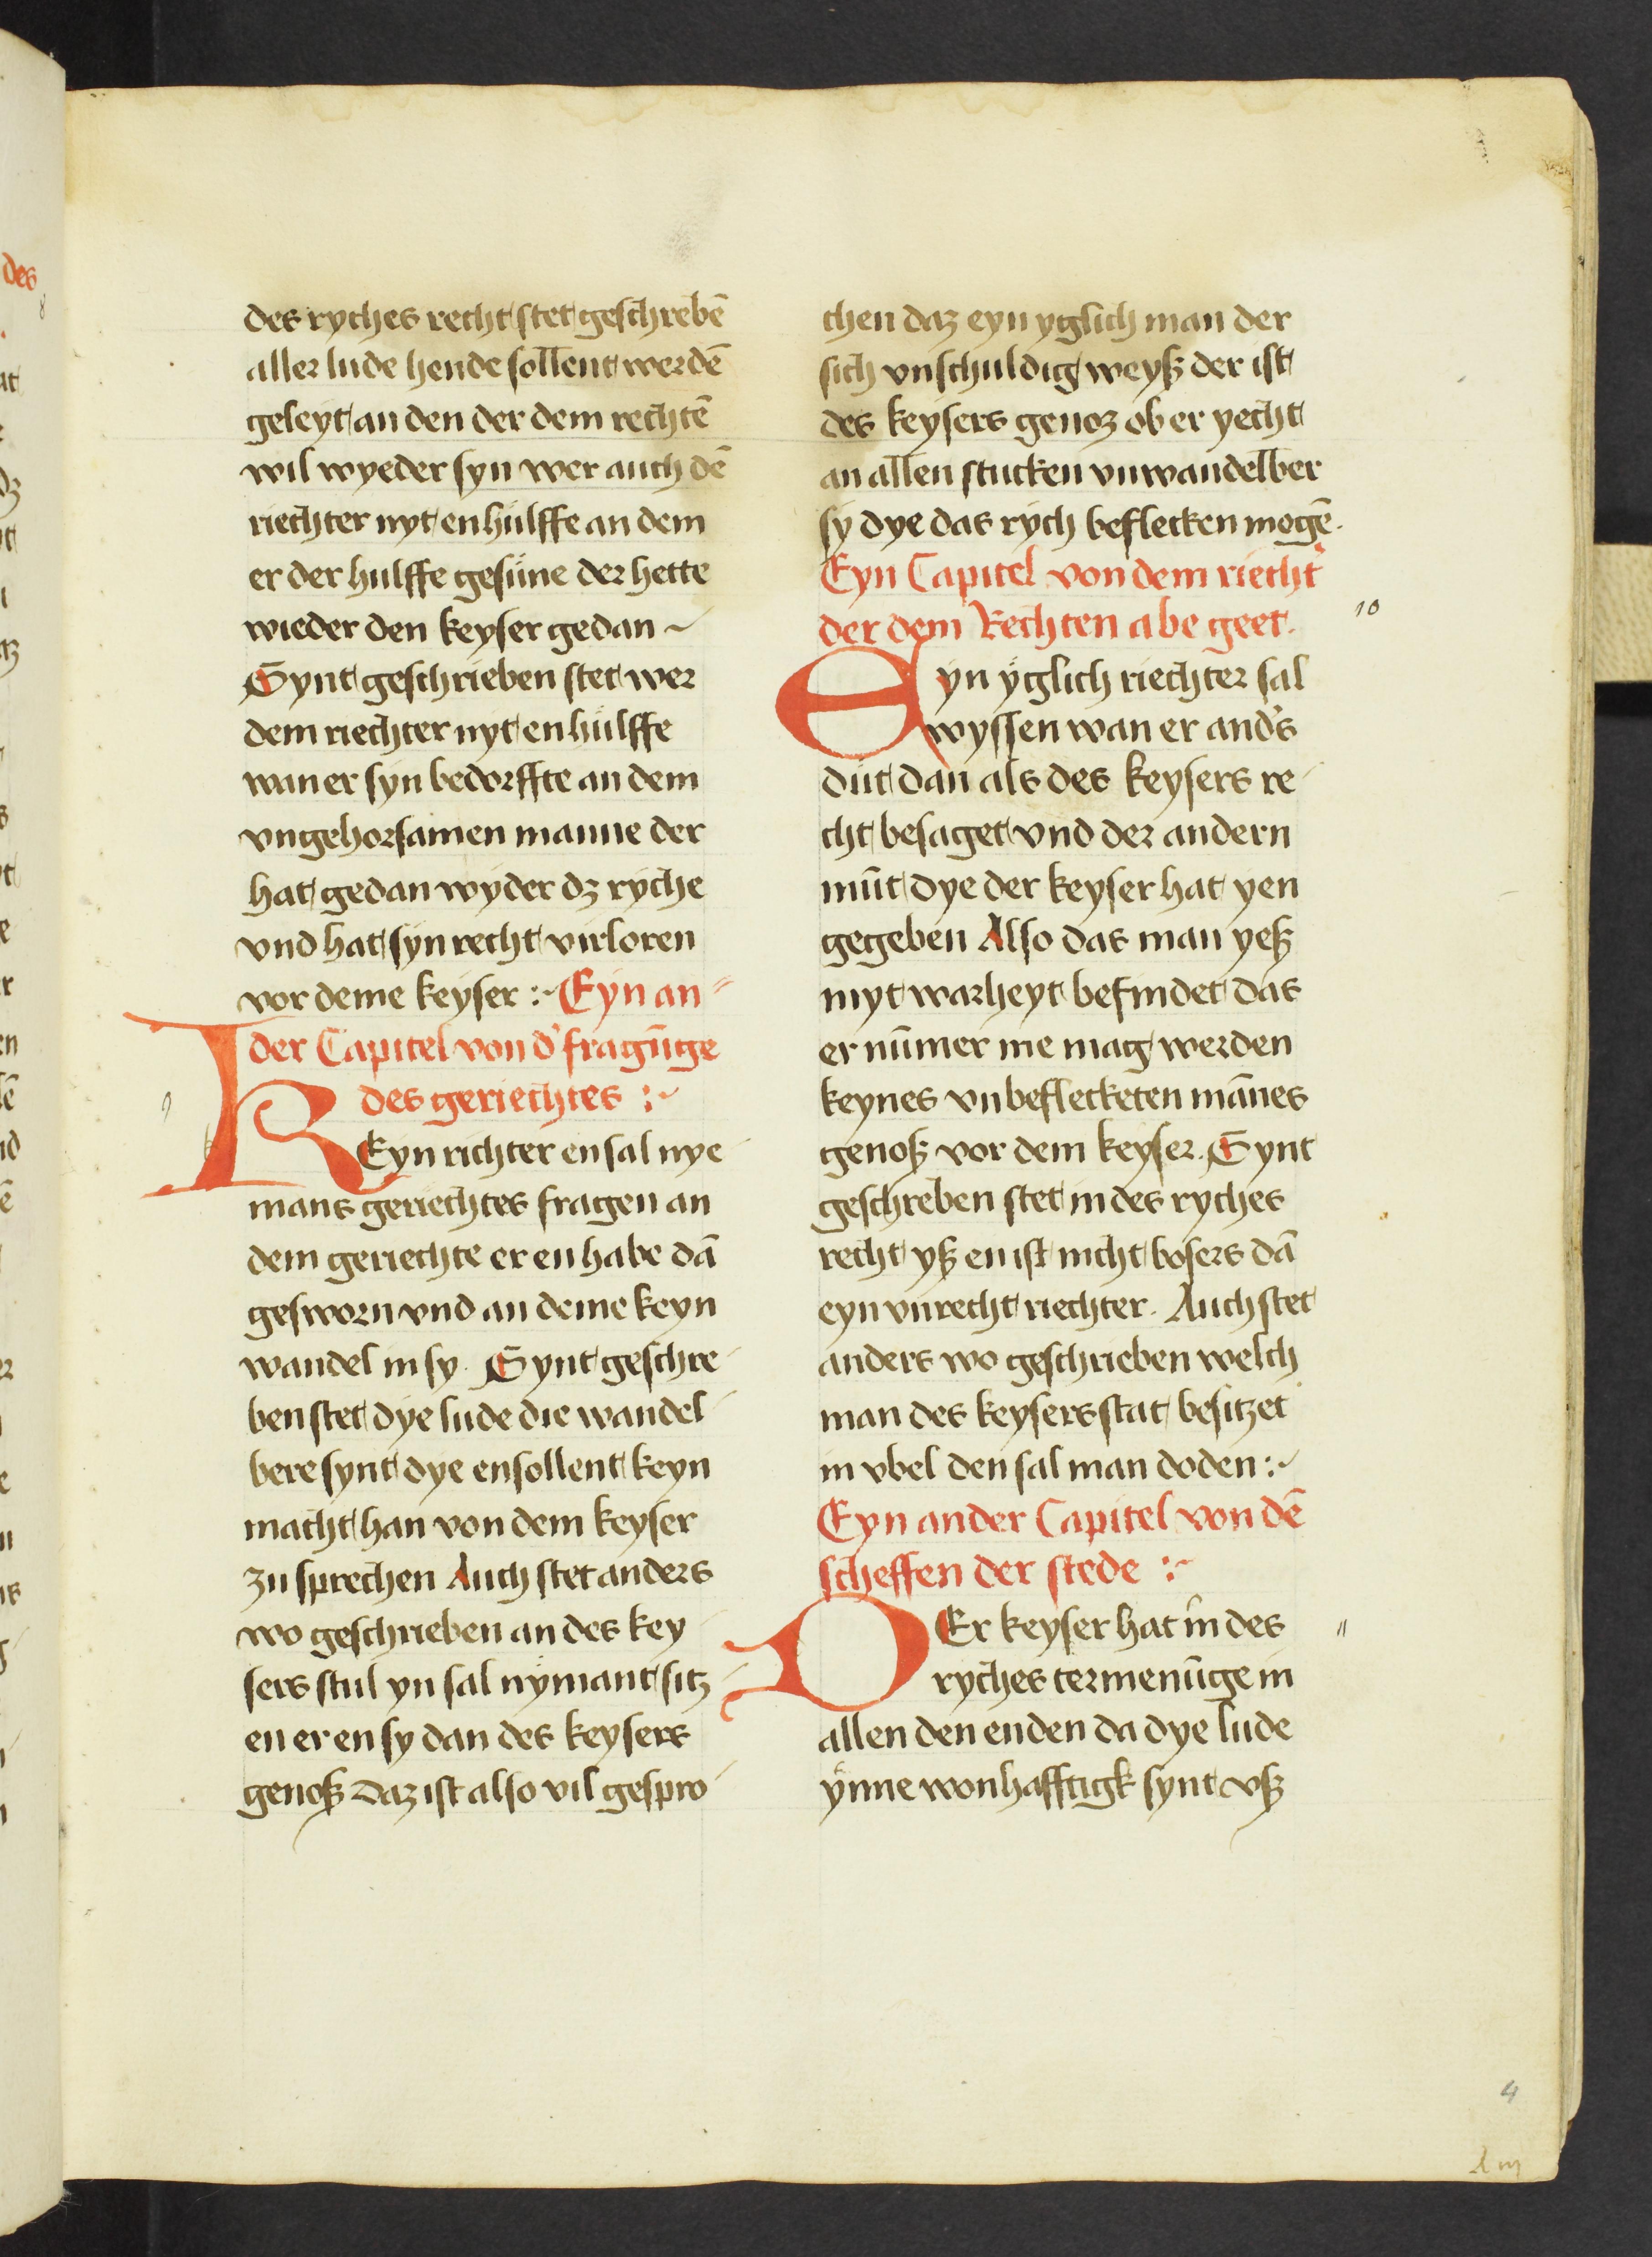 des ryches recht stet geschrebē
aller lude hende sollent werdē
geleyt an den der dem rechtē
wil wyeder syn wer auch dē
riechter nyt en hulffe an dem
er der hulffe gesüne der hette
wieder den keyser gedan ~
Synt geschrieben stet wer
dem riechter nyt en hülffe
wan er syn bedorffte an dem
vngehorsamen manne der
hat gedan wyder dz ryche
vnd hat syn recht virloren
vor deme keyser :~ Eyn an=
der Capitel von d' fragūge
des geriechtes :~
KEyn richter en sal nye-
mans geriechtes fragen an
dem geriechte er en habe dā
gesworn vnd an deme keyn
wandel in sy. Synt geschre-
ben stet dye lude die wandel-
bere synt dye ensollent keyn
macht han von dem keyser
zu sprechen Auch stet anders
wo geschrieben an des key-
sers stul yn sal nÿmant sitz-
en er en sy dan des keysers
genoß daz ist also vil gespro-
chen daz eyn yglich man der
sich vnschuldig weyß der ist
des keysers genoz ob er yecht
an allen stucken vnwandelber
sy dye das rych beflecken mogē.
Eyn Capitel von dem riecht'
der dem Rechten abe geet.
EYn ÿglich riechter sal
wyssen wan er and's
düt dan als des keysers re-
cht besaget vnd der andern
mūt dye der keyser hat yen
gegeben Also das man yeß
myt warheyt befindet das
er nūmer me mag werden
keynes vnbeflecketen mānes
genoß vor dem keyser. Synt
geschreben stet in des ryches
recht yß en ist nicht bosers dā
eyn vnrecht riechter. Auch stet
anders wo geschrieben welch
man des keysers stat besitzet
in vbel den sal man doden :~
Eyn ander Capitel von dē
scheffen der stede :~
DEr keyser hat in des
ryches termenūge in
allen den enden da dye lude
ÿnne wonhafftigk synt vß
9
10
11
4